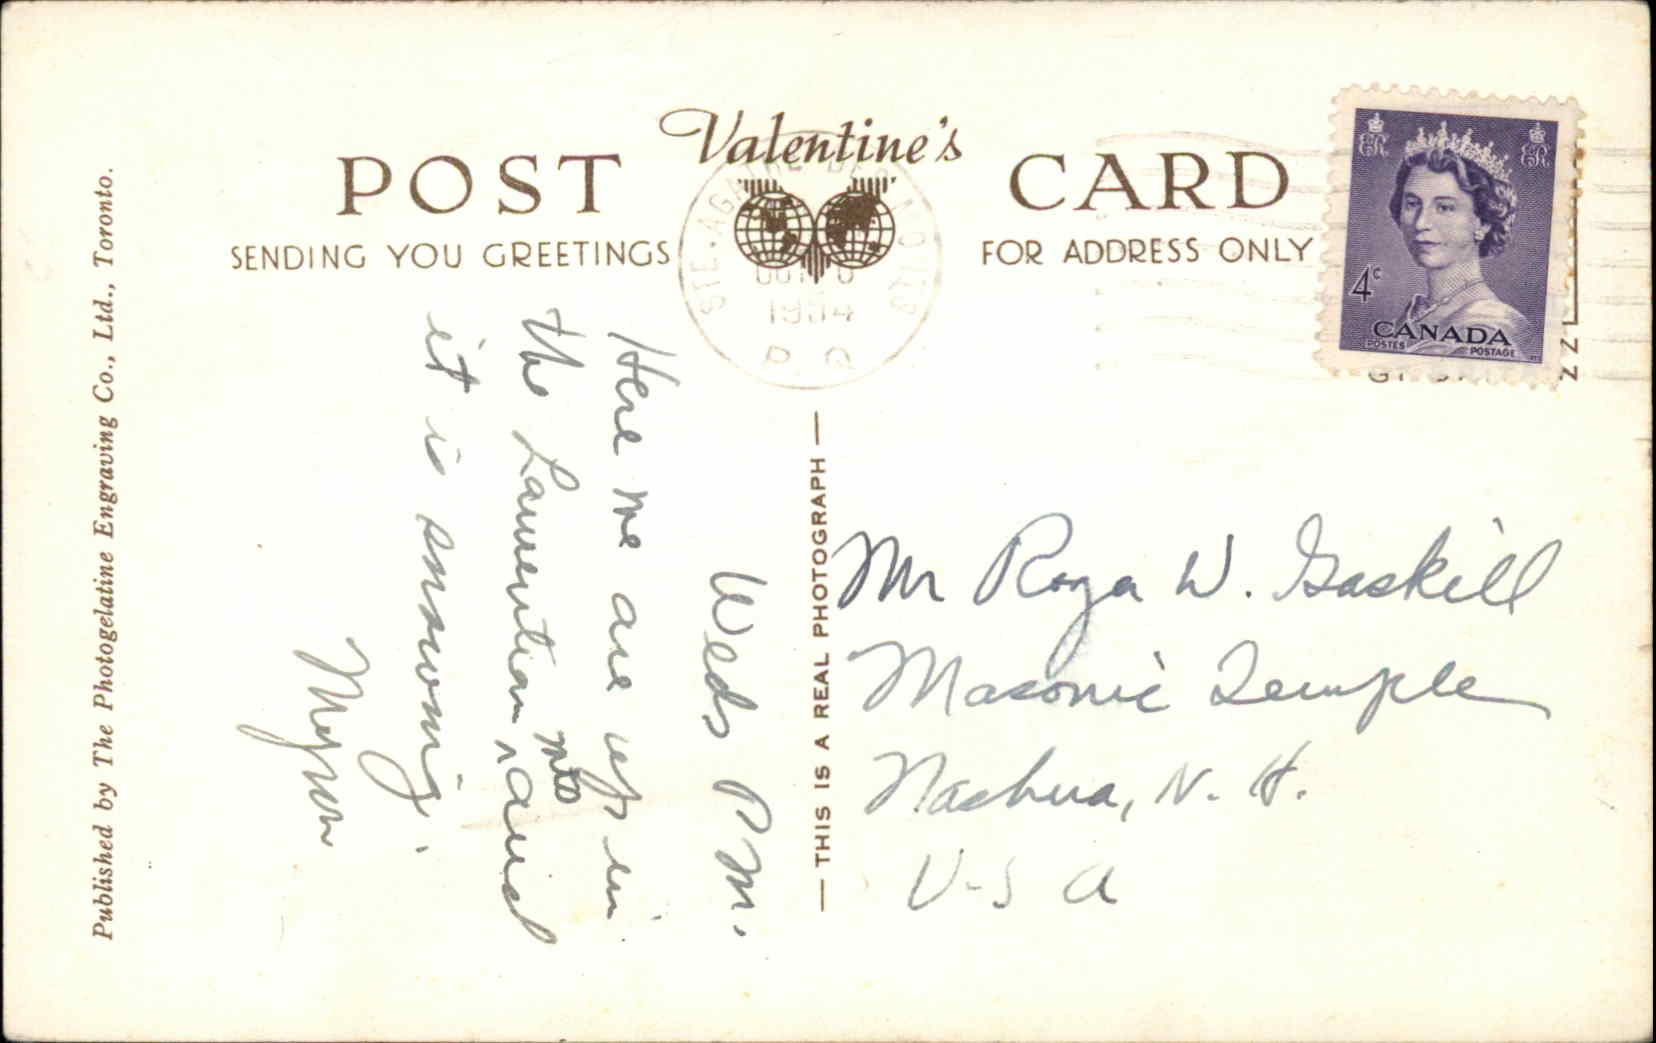 Valentine's
POST CARD
SENDING YOU GREETINGS
FOR ADDRESS ONLY
STE-AGATHE-DES-MONTS
1954
P Q
ER ER
4c
CANADA
POSTES POSTAGE
Weds PM.
Here we are up in
the Laurentian mts and
it is snowing.
Myron
Mr Roger W. Gaskill
Masonic Temple
Nashua, N. H.
U-S A
— THIS IS A REAL PHOTOGRAPH —
Published by The Photogelatine Engraving Co., Ltd., Toronto.